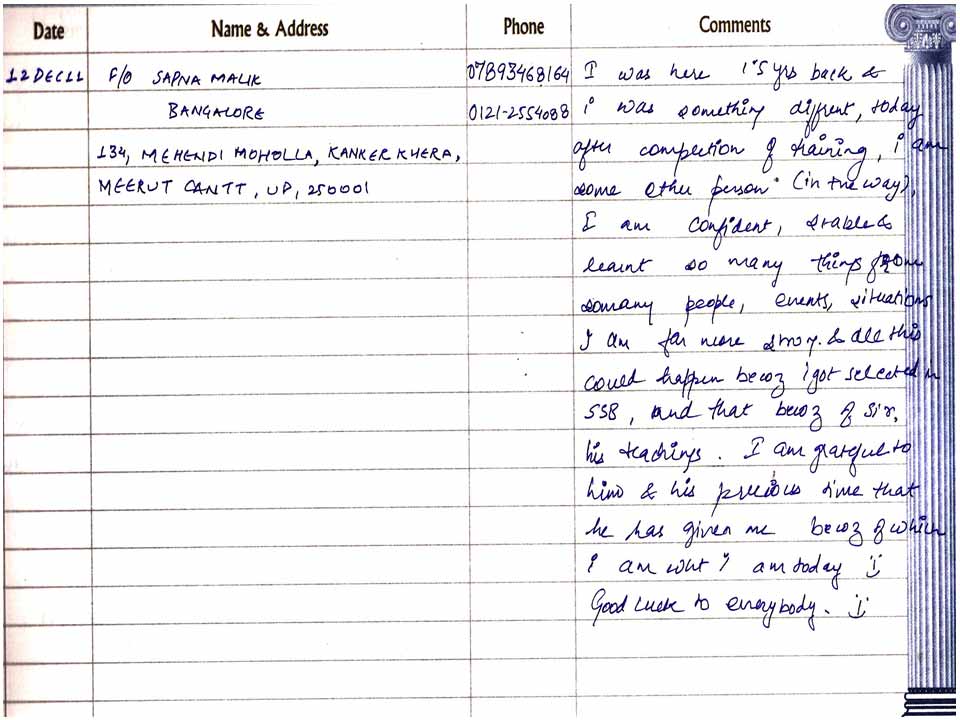 Date Name & Address Phone Comments
12 DEC 11 F/O SAPNA MALIK 07893468164 I was here 1.5 yrs back &
BANGALORE 0121-2554088 i was something diffrent, today
134, MEHENDI MOHOLLA, KANKER KHERA, after compection of training, i am
MEERUT CANTT, UP, 250001 some other person (in the way),
I am confident, stable &
learnt so many things from
somany people, events, situations
I am far more strong. & all this
could happen becoz i got selected in
SSB, and that becoz of Sir,
his teachings. I am grateful to
him & his precious time that
he has given me becoz of which
i am wht I am today :)
Good luck to everybody. :)